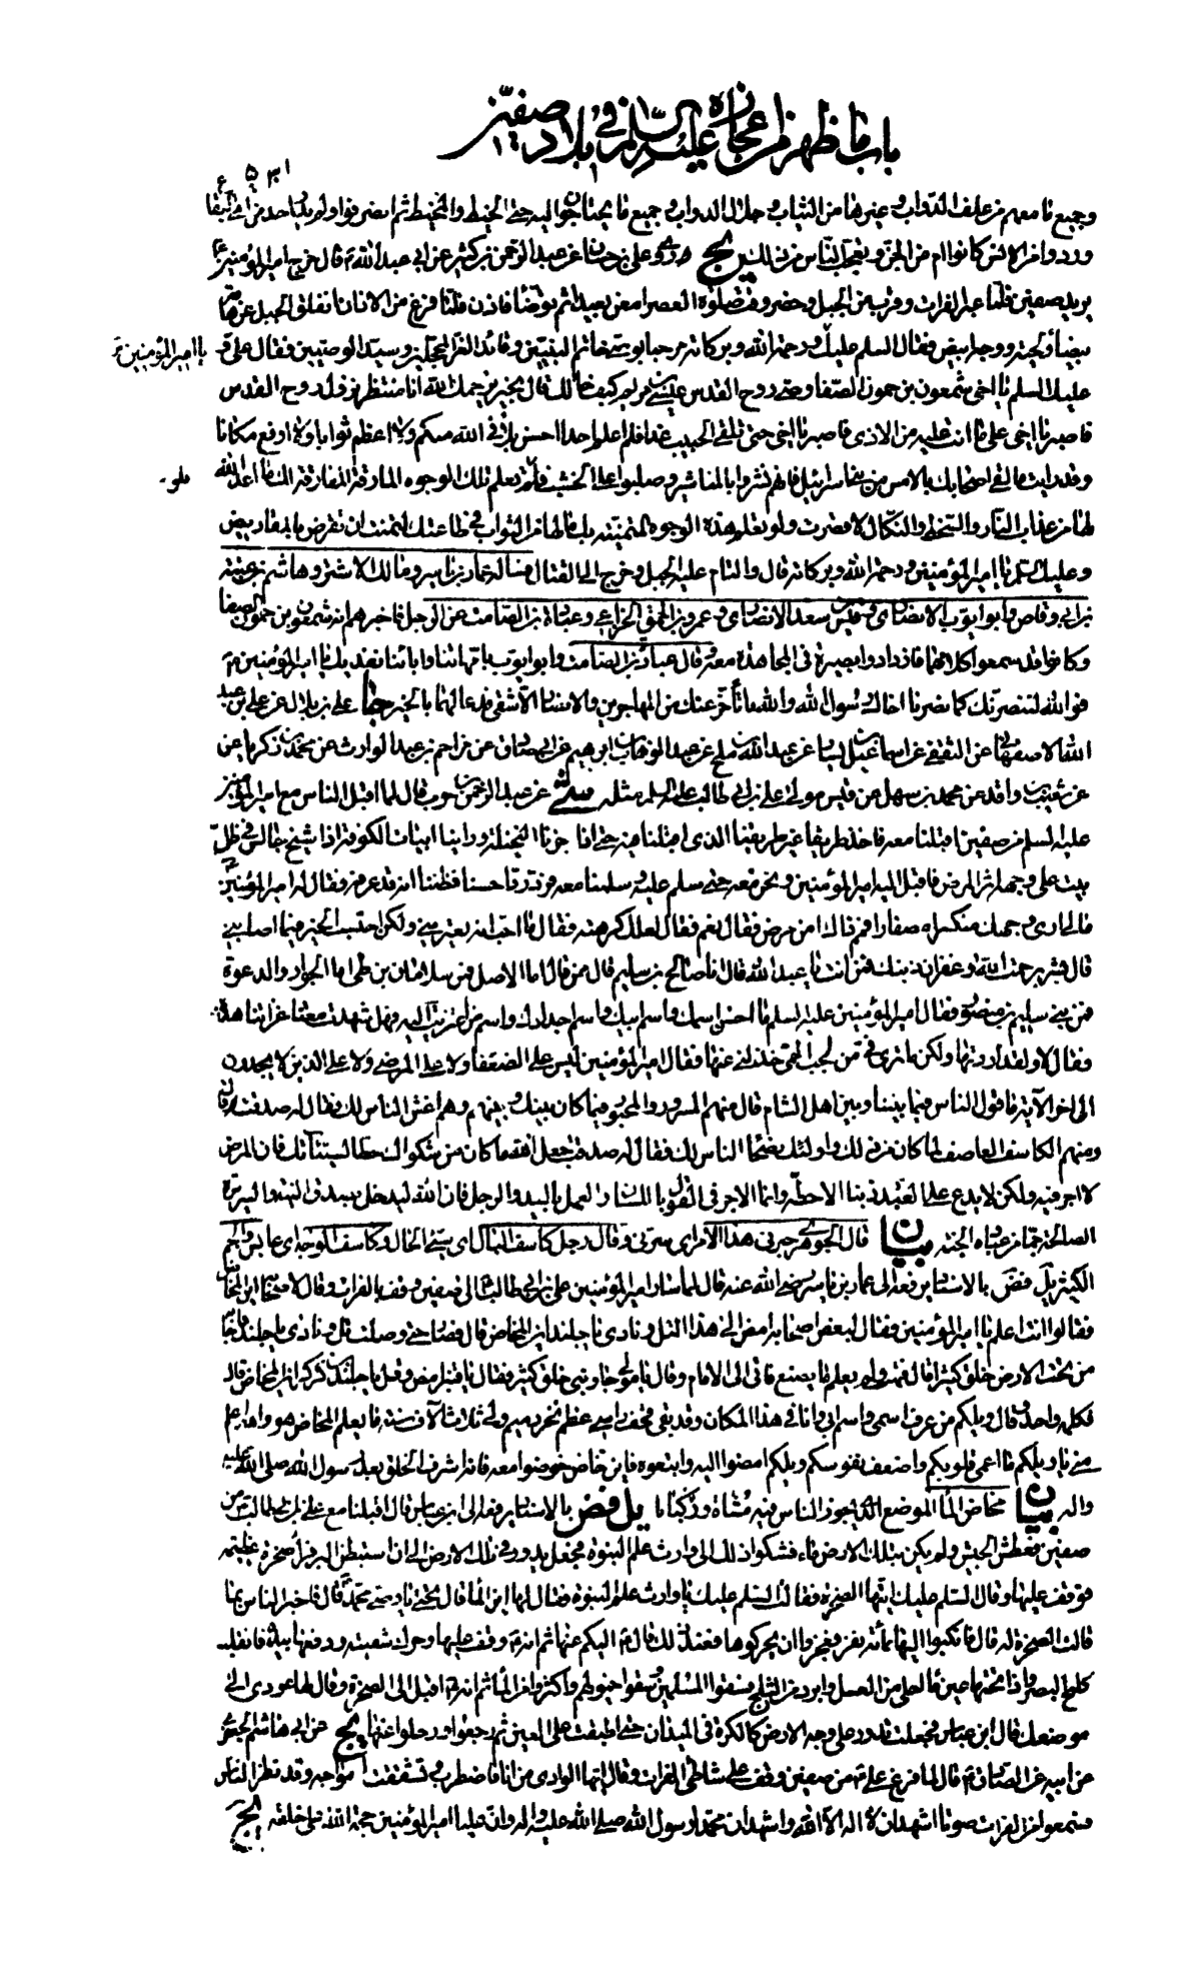 باب ما ظهر من اعجازه عليه السلام في بلاد صفين
٥٣١
وجميع ما معهم من علف الدواب وغيرها من الثياب وجلال الدواب وجميع ما يحتاجون اليه حتى الخيط والمخيط ثم انصرفوا ولم يدر احد من اي
وردوا من الانس كانوا ام من الجن وتعجب الناس من ذلك يج روي علي بن حسان عن عبد الرحمن بن كثير عن ابي عبد الله ع قال خرج امير المؤمنين ع
يريد صفين فلما عبر الفرات وقرب من الجبل وحضر وقت صلوة العصر امعن بعيدا ثم توضأ فاذن فلما فرغ من الاذان انفلق الجبل عن هامة
بيضاء بلحية ووجه ابيض فقال السلم عليك ورحمة الله وبركاته مرحبا بوصي خاتم النبيين وقائد الغر المحجلين وسيد الوصيين فقال علي ع و
يا امير المؤمنين
عليك السلم يا اخي شمعون بن حمون الصفا وصي روح القدس عيسى بن مريم كيف حالك قال بخير يرحمك الله انا منتظر نزول روح القدس
فاصبر يا اخي علي ما انت عليه من الاذى فاصبر يا اخي حتى تلقى الحبيب غدا فلم اعلم احدا احسن بلاء في الله منكم ولا اعظم ثوابا ولا ارفع مكانا
وقد رايت ما لقي اصحابك بالامس من بني اسرائيل فانهم نشروا بالمناشير وصلبوا على الخشب فلو تعلم تلك الوجوه المارقة المفارقة لك ما اعد الله
فلو
لها من عذاب النار والسخط والنكال لاقصرت ولو تعلم هذه الوجوه المتمنية بك ما لها من الثواب في طاعتك لتمنت ان تقرض بالمقاريض
وعليك السلم يا امير المؤمنين ورحمة الله وبركاته قال والتام عليه الجبل وخرج الى القتال فساله عمار بن ياسر ومالك الاشتر وهاشم بن عتبة
بن ابي وقاص وابو ايوب الانصاري وقيس بن سعد الانصاري وعمرو بن الحمق الخزاعي وعبادة بن الصامت عن الرجل فاخبرهم انه شمعون بن حمون الصفا
وكانوا قد سمعوا كلامهما فازدادوا بصيرة في المجاهدة معه وقال عبادة بن الصامت وابو ايوب بامهاتنا وابائنا نفديك يا امير المؤمنين
فوالله لننصرنك كما نصرنا اخاك رسول الله والله ما تأخر عنك من المهاجرين والانصار الا شقي فدعا لهما بالخير جا علي بن بلال عن علي بن عبد
الله الاصفهاني عن الثقفي عن اسماعيل بن يسار عن عبد الله بن ملح عن عبد الوهاب بن ابرهيم عن ابي صادق عن مزاحم بن عبد الوارث عن محمد بن زكريا عن
عن شعيب بن واقد عن محمد بن سهل عن قيس مولى علي بن ابي طالب عليه السلم مثله عن عبد الرحمن بن جندب قال لما اقبل الناس مع امير المؤمنين
عليه السلم من صفين اقبلنا معه فاخذ طريقا غير طريقنا الذي اقبلنا فيه حتى اذا جزنا النخيلة وراينا ابيات الكوفة اذا شيخ جالس في ظل
بيت على وجهه اثر المرض فاقبل اليه امير المؤمنين ونحن معه حتى سلم عليه وسلمنا معه فرد ردا حسنا فظننا انه قد عرفه فقال له امير المؤمنين
مالي ارى وجهك منكسرا مصفارا فمم ذاك امن مرض فقال نعم فقال لعلك كرهته فقال ما احب انه يعتريني ولكن احتسب الخير فيما اصابني
قال فابشر برحمة الله وغفران ذنبك فمن انت يا عبد الله قال انا صالح بن سليم قال ممن قال اما الاصل فمن سلامان بن طي واما الجوار والدعوة
فمن بني سليم بن منصور فقال امير المؤمنين عليه السلم ما احسن اسمك واسم ابيك واسم اجدادك واسم من اعتزيت اليه فهل شهدت معنا غزاتنا هذه
فقال لا ولقد اردتها ولكن ما ترى في من لجب الحمى خذلني عنها فقال امير المؤمنين ليس على الضعفاء ولا على المرضى ولا على الذين لا يجدون
الى اخر الآية فما قول الناس فيما بيننا وبين اهل الشام قال منهم المسرور والمحبور فيما كان بينك وبينهم وهم اغش الناس لك فقال له صدقت قال
ومنهم الكاسف الاسف لما كان من ذلك واولئك نصحاء الناس لك فقال له صدقت جعل الله ما كان من شكواك حطا لسيئاتك فان المرض
لا اجر فيه ولكن لا يدع على العبد ذنبا الا حطه وانما الاجر في القول باللسان والعمل باليد والرجل فان الله ليدخل بصدق النية والسريرة
الصالحة جما من عباده الجنة بيان قال الجوهري حبرني هذا الامر اي سرني وقال رجل كاسف البال اي سيئ الحال وكاسف الوجه اي عابس والجم
الكثير يل فض بالاسناد يرفعه الى عمار بن ياسر رضي الله عنه قال لما سار امير المؤمنين علي بن ابي طالب الى صفين وقف بالفرات وقال لاصحابه اين المخاض
فقالوا انت اعلم يا امير المؤمنين فقال لبعض اصحابه امض الى هذا التل وناد يا جلند اين المخاض قال فصار حتى وصل التل ونادى يا جلند فاجابه
من تحت الارض خلق كثير قال فبهت ولم يعلم ما يصنع فاتى الى الامام وقال يا مولاي جاوبني خلق كثير فقال يا قنبر امض وقل يا جلند بن كركر اين المخاض قال
فكلمه واحد وقال ويلكم من عرف اسمي واسم ابي وانا في هذا المكان وقد بقي قحف راسي عظم نخر رميم ولي ثلاث الآف سنة ما يعلم المخاض هو والله اعلم
مني يا ويلكم ما اعمى قلوبكم واضعف نفوسكم ويلكم امضوا اليه واتبعوه فاين خاض خوضوا معه فانه اشرف الخلق بعد رسول الله صلى الله عليه
واله بيان مخاض الماء الموضع الذي يجوز الناس فيه مشاة وركبانا يل فض بالاسناد يرفعه الى ابن عباس قال اقبلنا مع علي بن ابي طالب من
صفين فعطش الجيش ولم يكن بتلك الارض ماء فشكوا ذلك الى وارث علم النبوة فجعل يدور في تلك الارض الى ان استبطن البر فرأى صخرة عظيمة
فوقف عليها وقال السلم عليك ايتها الصخرة فقالت السلم عليك يا وارث علم النبوة فقال لها اين الماء قال تحتي يا وصي محمد قال فاخبر الناس بما
قالت الصخرة له قال فانكبوا اليها بمائة نفر فعجزوا ان يحركوها فعند ذلك قال ع اليكم عنها ثم انه ع وقف عليها وحرك شفتيه ودفعها بيده فانقلبت
كلمح البصر واذا تحتها عين ماء احلى من العسل وابرد من الثلج فسقوا المسلمين وسقوا خيولهم واكثروا من الماء ثم انه ع اقبل الى الصخرة وقال لها عودي الى
موضعك قال ابن عباس فجعلت تدور على وجه الارض كالكرة في الميدان حتى اطبقت على العين ثم رجعوا ورحلوا عنها يج عن ابي هاشم الجعفري
عن ابيه عن الصادق ع قال لما فرغ علي ع من صفين وقف على شاطئ الفرات وقال ايها الوادي من انا فاضطرب وتشققت امواجه وقد نظر الناس
فسمعوا من الفرات صوتا اشهد ان لا اله الا الله واشهد ان محمدا رسول الله صلى الله عليه واله وان عليا امير المؤمنين حجة الله على خلقه يج